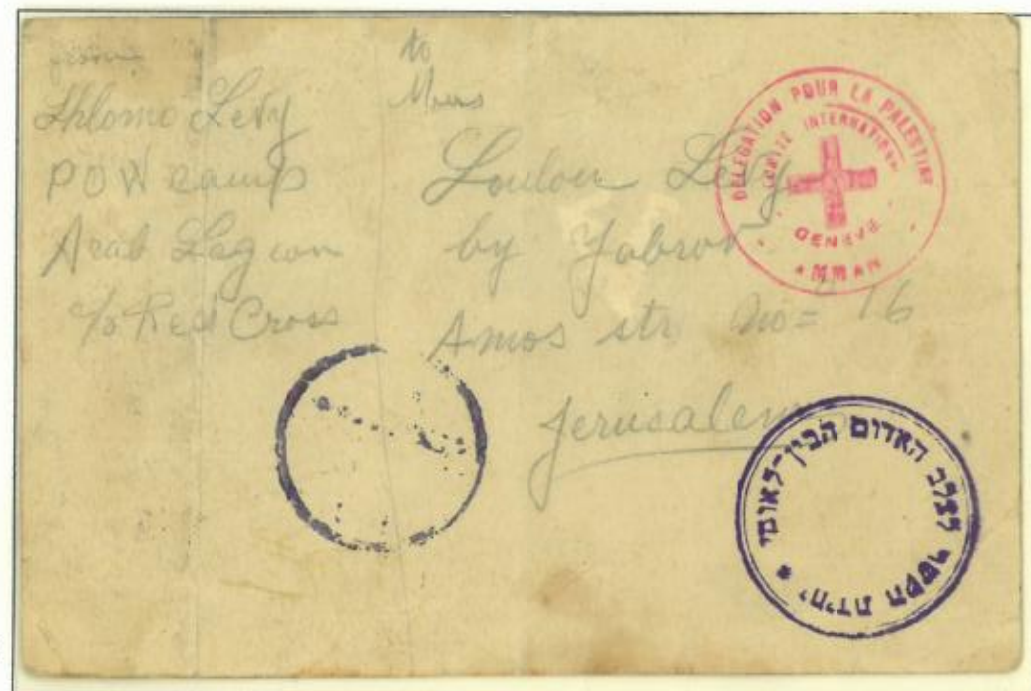 from
Shlomo Levy
POW camp
Arab Legion
c/o Red Cross
to
Mrs
Loulou Levy
by Yabrov
Amos str no= 16
Jerusalem
DÉLÉGATION POUR LA PALESTINE
COMITÉ INTERNATIONAL
GENÈVE
AMMAN
יחידת הקשר לצלב האדום הבין-לאומי